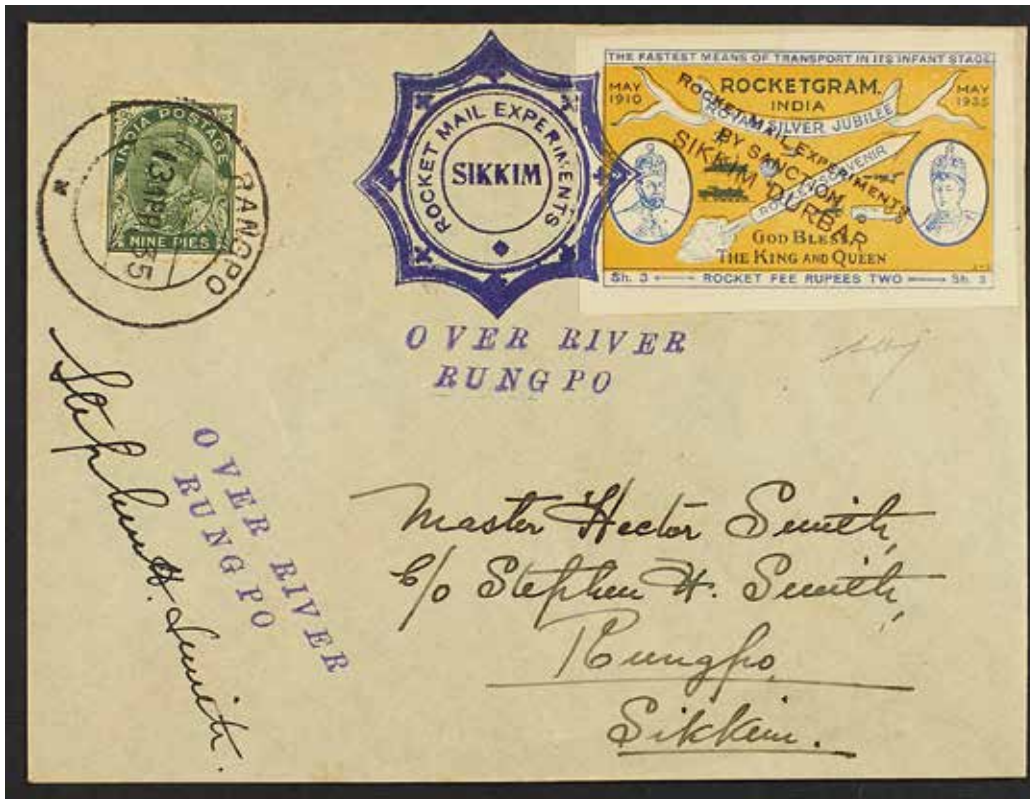 INDIA POSTAGE
NINE PIES
RANGPO
13 APR 35
ROCKET MAIL EXPERIMENTS
SIKKIM
THE FASTEST MEANS OF TRANSPORT IN ITS INFANT STAGE.
ROCKETGRAM.
MAY 1910
INDIA
MAY 1935
ROYAL SILVER JUBILEE
SOUVENIR
ROCKET MAIL EXPERIMENTS
BY SANCTION
SIKKIM DURBAR
GOD BLESS
THE KING AND QUEEN
Sh. 3 ROCKET FEE RUPEES TWO Sh. 3
OVER RIVER
RUNGPO
Stephen H. Smith.
OVER RIVER
RUNGPO
Master Hector Smith,
c/o Stephen H. Smith,
Rungpo,
Sikkim.